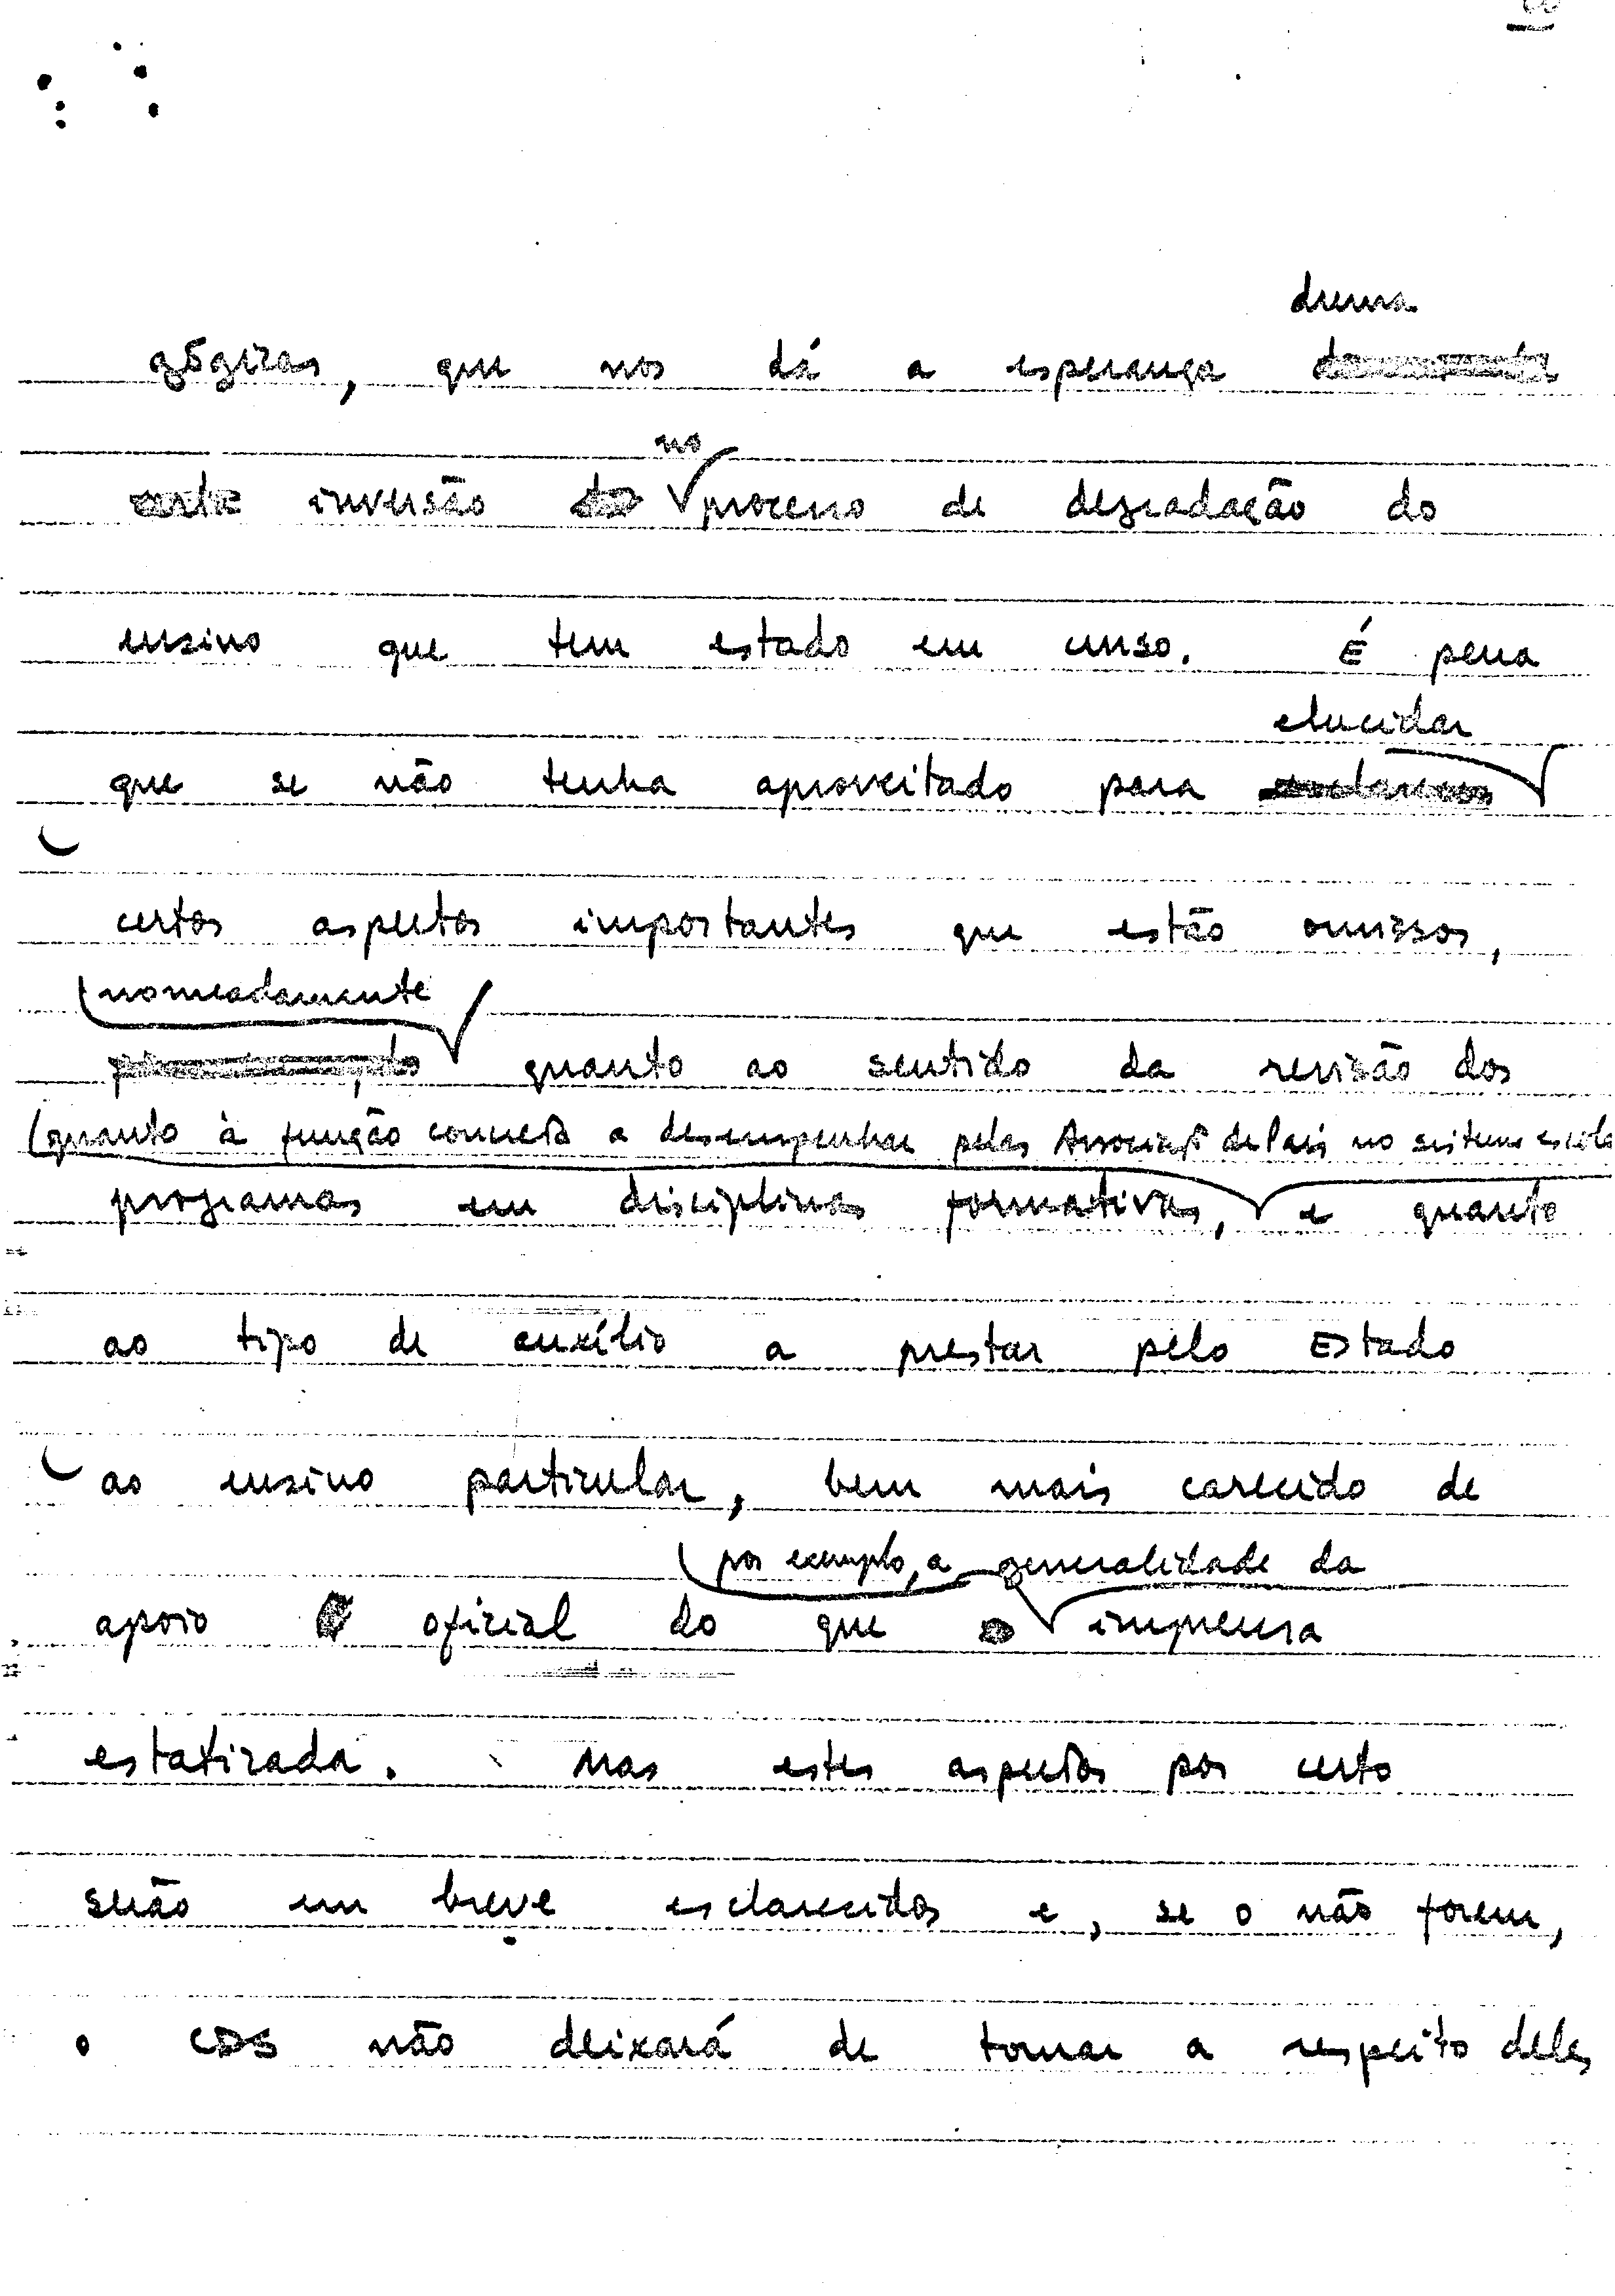 duma
gógicas, que nos dá a esperança
no
inversão processo de degradação do
ensino que tem estado em curso. É pena
elucidar
que se não tenha aproveitado para
certos aspectos importantes que estão omissos,
nomeadamente
quanto ao sentido da revisão dos
quanto à função concreta a desempenhar pelas de Pais no sistema
programas em disciplinas formativas, e quanto
ao tipo de auxílio a prestar pelo Estado
ao ensino particular, bem mais carecido de
por exemplo, a generalidade da
apoio oficial do que imprensa
estatizada. Mas estes aspectos por certo
serão em breve esclarecidos e, se o não forem,
o CDS não deixará de tomar a respeito deles